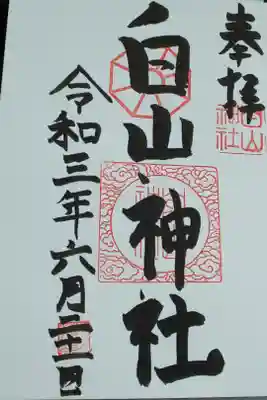 奉拝
白山神社
令和三年六月二十一日